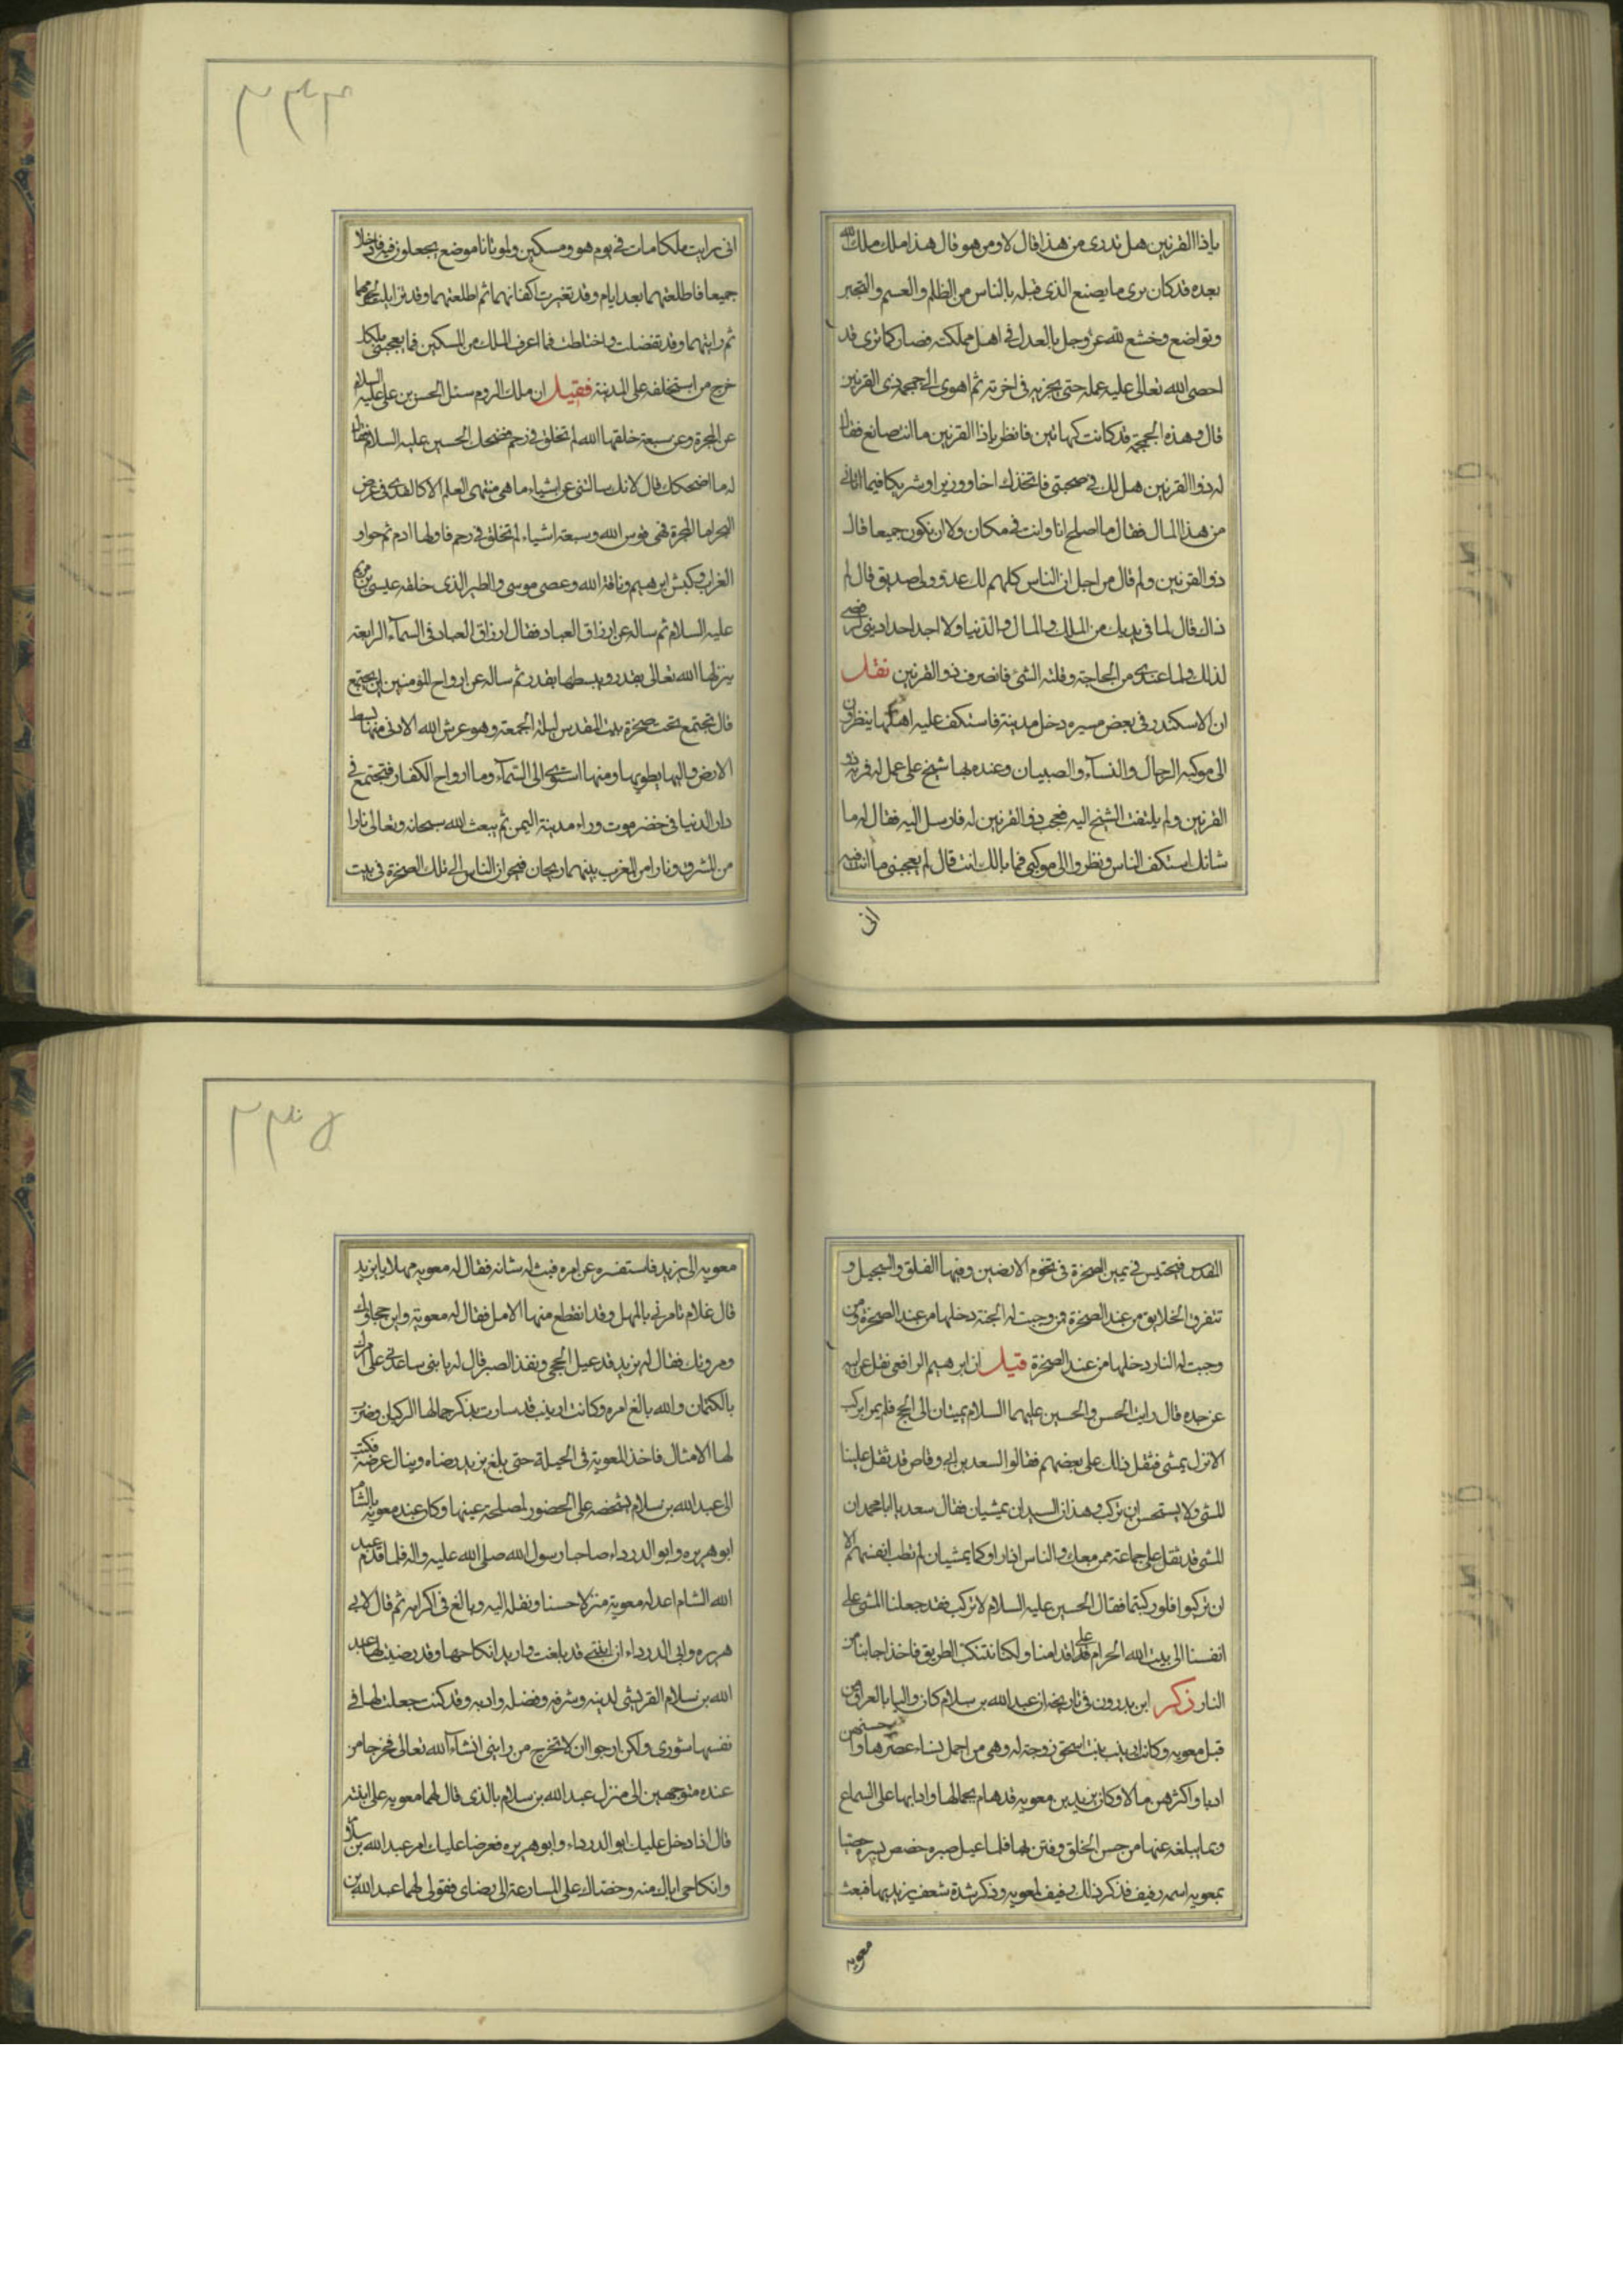 ياذا القرنين هل تدرى من هذا قال لا ومن هو قال هذا ملك ملك الله
بعده قد كان يرى ما يصنع الذى قبله بالناس من الظلم والغشم والتجبر
وتواضع وخشع لله عز وجل بالعدل فى اهل مملكته فصار كما ترى قد
احصى الله تعالى عليه عمله حتى يجزيه فى اخرته ثم اهوى الى جمجمة ذى القرنين
قال وهذه الجمجمة قد كانت كهاتين فانظر ياذا القرنين ما انت صانع فقال
له ذو القرنين هل لك فى صحبتى فاتخذك اخا ووزيرا وشريكا فيما اتانى
من هذا المال فقال ما اصلح انا وانت فى مكان ولا ان نكون جميعا قال
ذو القرنين ولم قال من اجل ان الناس كلهم لك عدو ولى صديق قال لم
ذاك قال لما فى يديك من الملك والمال والدنيا ولا اجد احدا دينى رفضى
لذلك ولما عندى من الحاجة وقلة الشئ فانصرف ذو القرنين نقل
ان الاسكندر فى بعض مسيره دخل مدينة فاستكف عليه اهلها ينظرون
الى موكبه الرجال والنسآء والصبيان وعنده بها شيخ على عمل له فمر به ذو
القرنين ولم يلتفت الشيخ اليه فعجب ذو القرنين له فارسل اليه فقال له ما
شانك استكف الناس ونظروا الى موكبى فما بالك انت قال لم يعجبنى ما انت فيه
انى
انى رايت ملكا مات فى يوم هو ومسكين ولموتانا موضع يجعلون فيه فادخلا
جميعا فاطلعتهما بعد ايام وقد تغيرت اكفانهما ثم اطلعتهما وقد تزايلت لحومهما
ثم رايتهما وقد تفضلت واختلطت فما اعرف الملك من المسكين فما يعجبنى ملكك
خرج من استخلفه على المدينة فقيل ان ملك الروم سئل الحسن بن على عليه السلام
عن المجرة وعن سبعة خلقها الله لم تخلق فى رحم فضحك الحسين عليه السلام فقال
له ما اضحكك قال لانك سالتنى عن اشياء ما هى منتهى العلم الا كالقذى فى عرض
البحر اما المجرة فهى قوس الله وسبعة اشياء لم تخلق فى رحم فاولها ادم ثم حوا و
الغراب وكبش ابرهيم وناقة الله وعصى موسى والطير الذى خلقه عيسى بن مريم
عليه السلام ثم ساله عن ارزاق العباد فقال ارزاق العباد فى السمآء الرابعة
ينزلها الله تعالى بقدر ويبسطها بقدر ثم ساله عن ارواح المؤمنين اين يجتمع
قال تجتمع تحت صخرة بيت المقدس ليلة الجمعة وهو عرش الله الادنى منها بسط
الارض واليها يطويها ومنها استوى الى السمآء وما ارواح الكفار فتجتمع فى
دار الدنيا فى خضر موت وراء مدينة اليمن ثم يبعث الله سبحانه وتعالى نارا
من المشرق ونارا من المغرب بينهما ريحان فيحران الناس الى تلك الصخرة فى بيت
المقدس فيحتبس فى يمين الصخرة فى تخوم الارضين وفيها الفلق والسجيل و
تتفرق الخلايق من عند الصخرة فمن وجبت له الجنة دخلها من عند الصخرة ومن
وجبت له النار دخلها من عند الصخرة قيل ان ابرهيم الرافعى نقل عن ابيه
عن جده قال رايت الحسن والحسين عليهما السلام يمشيان الى الحج فلم يمرا براكب
الا نزل يمشى فثقل ذلك على بعضهم فقالوا لسعد بن ابى وقاص قد ثقل علينا
المشى ولا يستحسن ان نركب وهذان السيدان يمشيان فقال سعد يا ابا محمد ان
المشى قد ثقل على جماعة ممن معك والناس اذا راوكما يمشيان لم تطب انفسهم الا
ان تركبوا فلو ركبتما فقال الحسين عليه السلام لا نركب فقد جعلنا المشى على
انفسنا الى بيت الله الحرام على اقدامنا ولكنا نتنكب الطريق فاخذا جانبا من
النار ذكر ابن بدرون فى تاريخه ان عبد الله بن سلام كان واليا بالعراق من
قبل معويه وكانت ارينب بنت اسحق زوجة له وهى من اجمل نساء عصرها واحسنهن
ادبا واكثرهن مالا وكان يزيد بن معويه قد هام بجمالها وادابها على السماع
وبما يبلغه عنها من حسن الخلق وفتن بها فلما عيل صبره خصص بسره خصيا
بمعويه اسمه رفيف فذكر ذلك رفيف لمعويه وذكر شدة شعف يزيد بها فبعث
معويه
معويه الى يزيد فاستفسره عن امره فبث له شانه فقال له معويه مهلا يا يزيد
قال علام تامرنى بالمهل وقد انقطع منها الامل فقال له معوية واين حجاك
ومروتك فقال له يزيد قد عيل الحجى ونفذ الصبر قال له يا بنى ساعدنى على امرك
بالكتمان والله بالغ امره وكانت ارينب قد سارت بذكر جمالها الركبان وضربت
لها الامثال فاخذ المعوية فى الحيلة حتى يبلغ يزيد رضاه وينال غرضه فكتب
الى عبد الله بن سلام يستحضه على الحضور لمصلحة عينها وكان عند معويه بالشام
ابو هريره وابو الدرداء صاحبا رسول الله صلى الله عليه واله فلما قدم عبد
الله الشام اعد له معوية منزلا حسنا ونقله اليه وبالغ فى اكرامه ثم قال لابى
هريره وابى الدرداء ان ابنتى قد بلغت واريد انكاحها وقد رضيت لها عبد
الله بن سلام القريشى لدينه وشرفه وفضله وادبه وقد كنت جعلت لها فى
نفسها شورى ولكن ارجوا ان لا تخرج من رايى انشآء الله تعالى فخرجا من
عنده متوجهين الى منزل عبد الله بن سلام بالذى قال لهما معويه على ابنته
قال اذا دخل عليك ابو الدرداء وابو هريره فعرضا عليك امر عبد الله بن سلام
وانكاحى اياك منه وحضاك على المسارعة الى رضاى فقولى لهما عبد الله بن